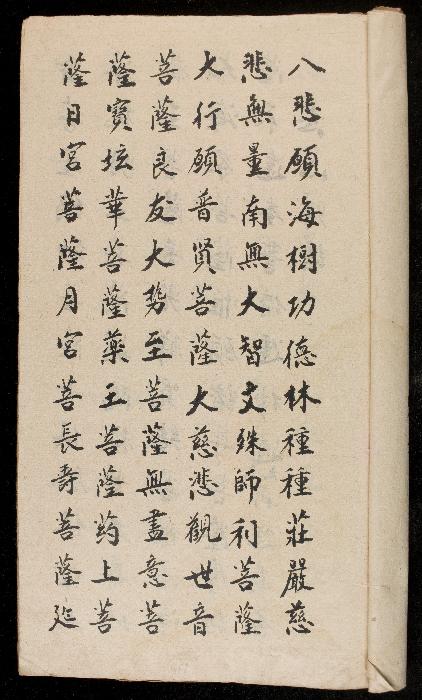 八悲願海樹功德林種種莊嚴慈
悲無量南無大智文殊師利菩薩
大行願普賢菩薩大慈悲觀世音
菩薩良友大勢至菩薩無盡意菩
薩寶坛華菩薩藥王菩薩药上菩
薩日宮菩薩月宮菩長壽菩薩延